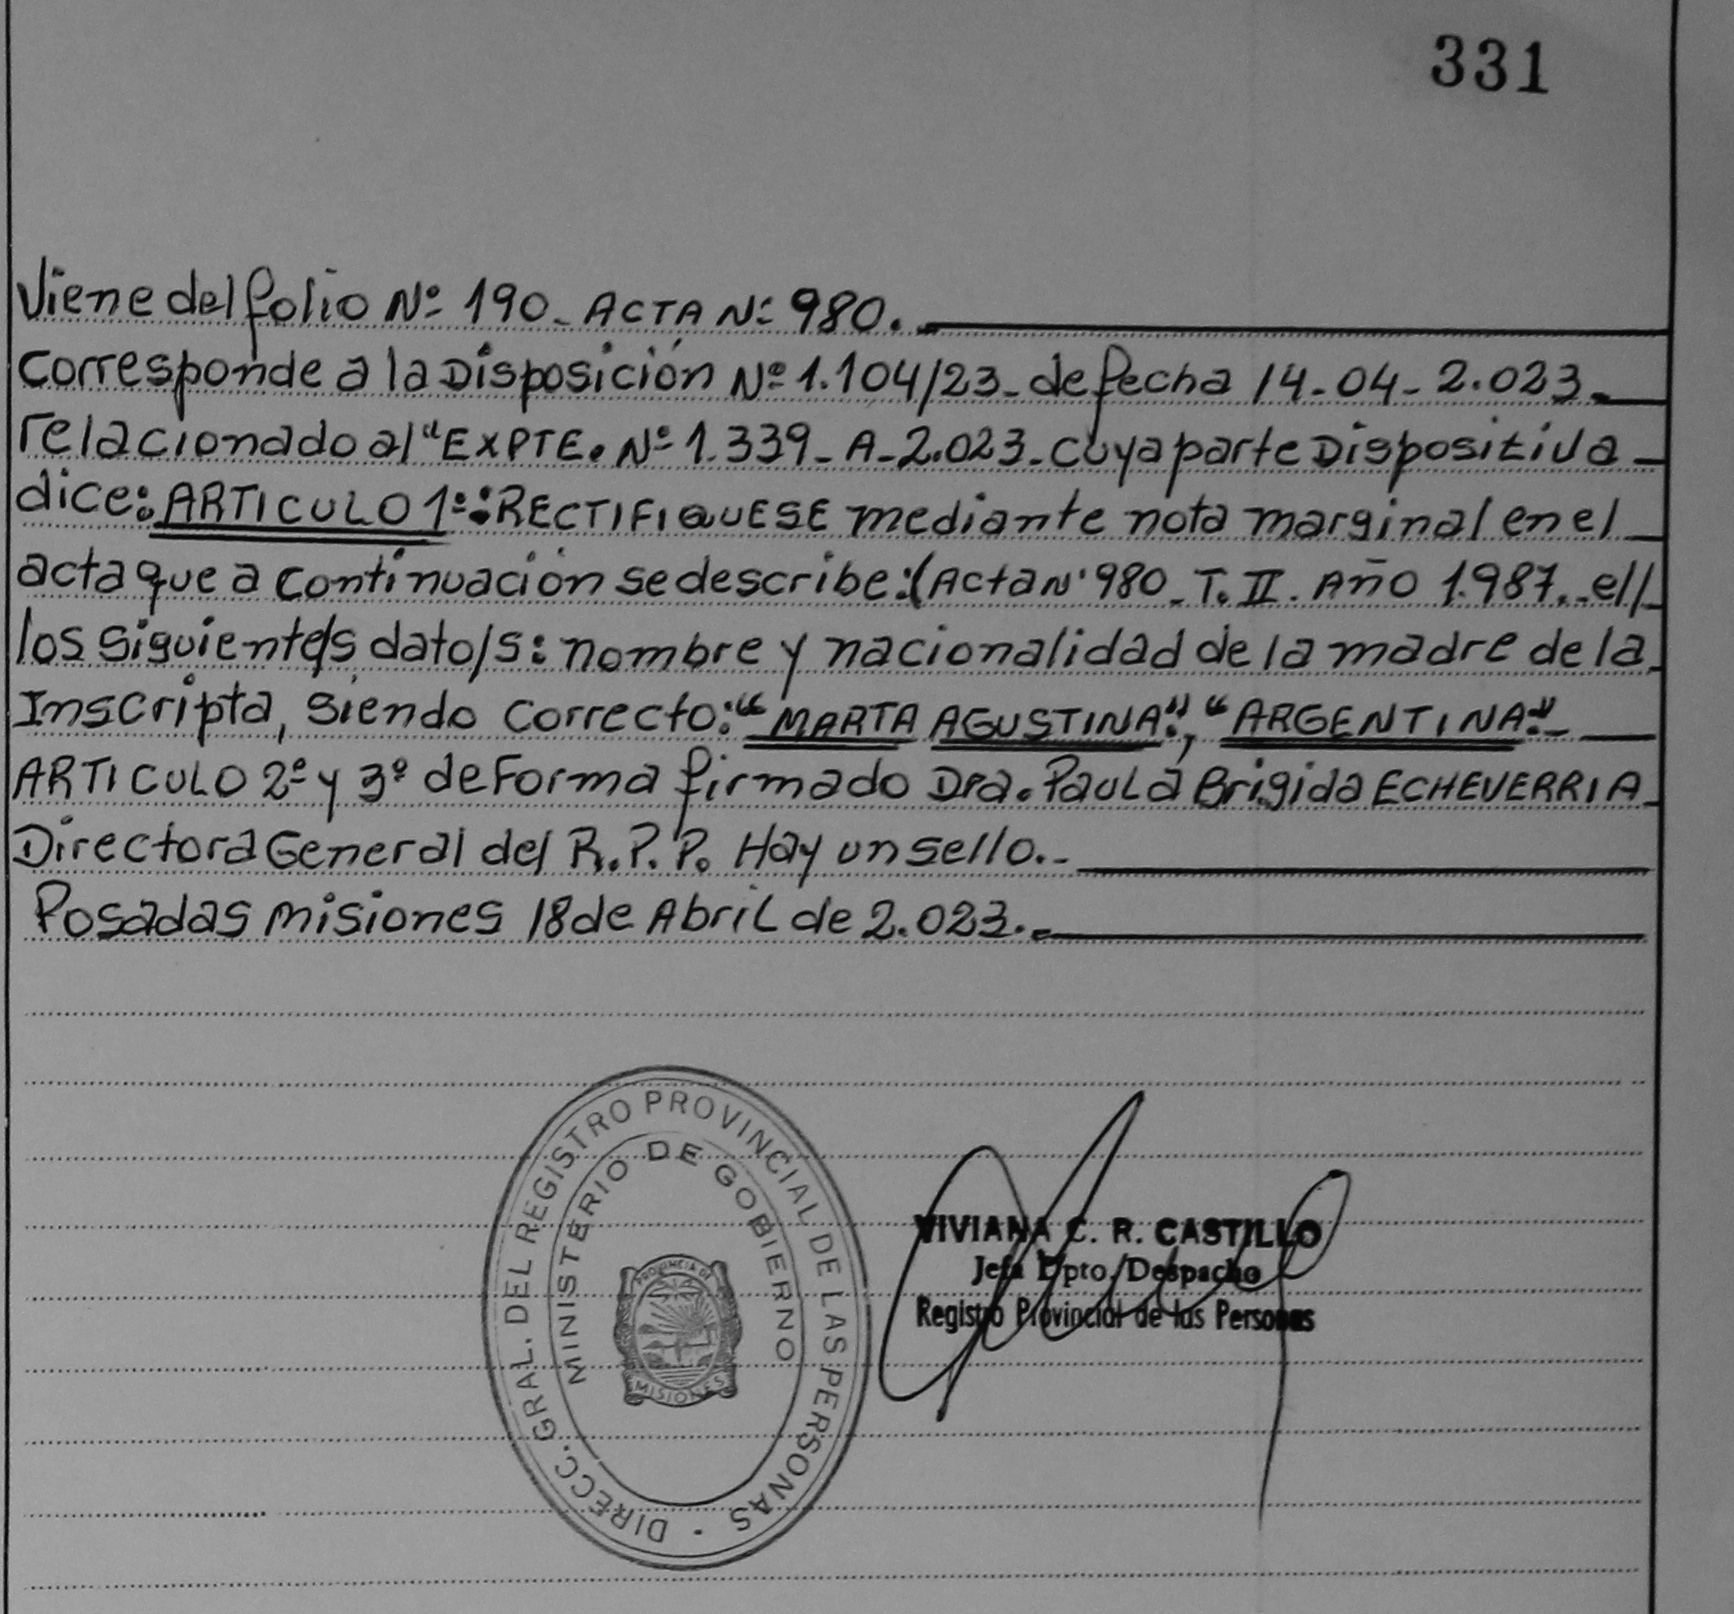 331
Viene del folio Nº 190_ ACTA Nº 980._
Corresponde a la Disposición Nº 1.104/23_ de fecha 14-04-2.023._
relacionado al "EXPTE. Nº 1.339_ A_2.023_ cuya parte Dispositiva_
dice: ARTICULO 1º: RECTIFIQUESE mediante nota marginal en el_
acta que a continuación se describe: (Acta Nº 980_ T. II. AÑO 1.987._ el/
los siguiente/s dato/s: nombre y nacionalidad de la madre de la_
Inscripta, siendo correcto: "MARTA AGUSTINA"; "ARGENTINA"._
ARTICULO 2º y 3º de Forma firmado Dra. Paula Brigida ECHEVERRIA_
Directora General del R.P.P. Hay un sello._
Posadas Misiones 18 de Abril de 2.023._
DIRECC. GRAL. DEL REGISTRO PROVINCIAL DE LAS PERSONAS
MINISTERIO DE GOBIERNO
PROVINCIA DE
MISIONES
VIVIANA C. R. CASTILLO
Jefa Dpto. Despacho
Registro Provincial de las Personas